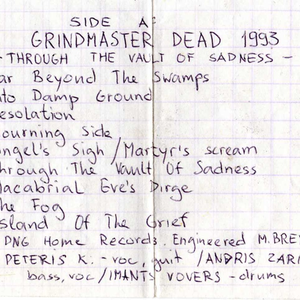 SIDE A:
GRINDMASTER DEAD 1993
- THROUGH THE VAULT OF SADNESS -
ar Beyond The Swamps
nto Damp Ground
esolation
ourning Side
ngel's Sigh / Martyr's scream
hrough The Vault Of Sadness
acabrial Eve's Dirge
he Fog
sland Of The Grief
DNG Home Records. Engineered M.BRE
PETERIS K. - voc, guit / ANDRIS ZARI
bass, voc / IMANTS VOVERS - drums